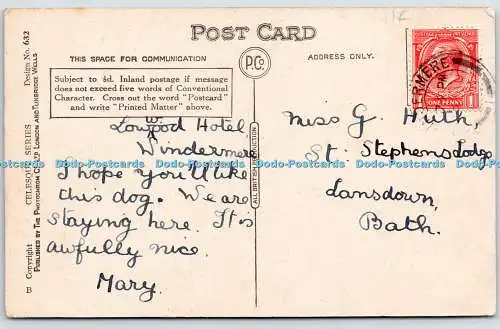 POST CARD
THIS SPACE FOR COMMUNICATION
P.Co.
ADDRESS ONLY.
Subject to ½d. Inland postage if message
does not exceed five words of Conventional
Character. Cross out the word "Postcard"
and write "Printed Matter" above.
Lowwood Hotel,
Windermere
I hope you'll like
this dog. We are
staying here. It is
awfully nice.
Mary.
Miss G. Huth,
St. Stephens Lodge
Lansdown,
Bath.
ONE PENNY
ERMERE
PM
ALL BRITISH PRODUCTION
Copyright CELESQUE SERIES Design No. 632
PUBLISHED BY THE PHOTOCHROM CO. LTD LONDON AND TUNBRIDGE WELLS
B
Dodo-Postcards Dodo-Postcards Dodo-Postcards Dodo-Postcards Dodo-Postcards Dodo-Postcards